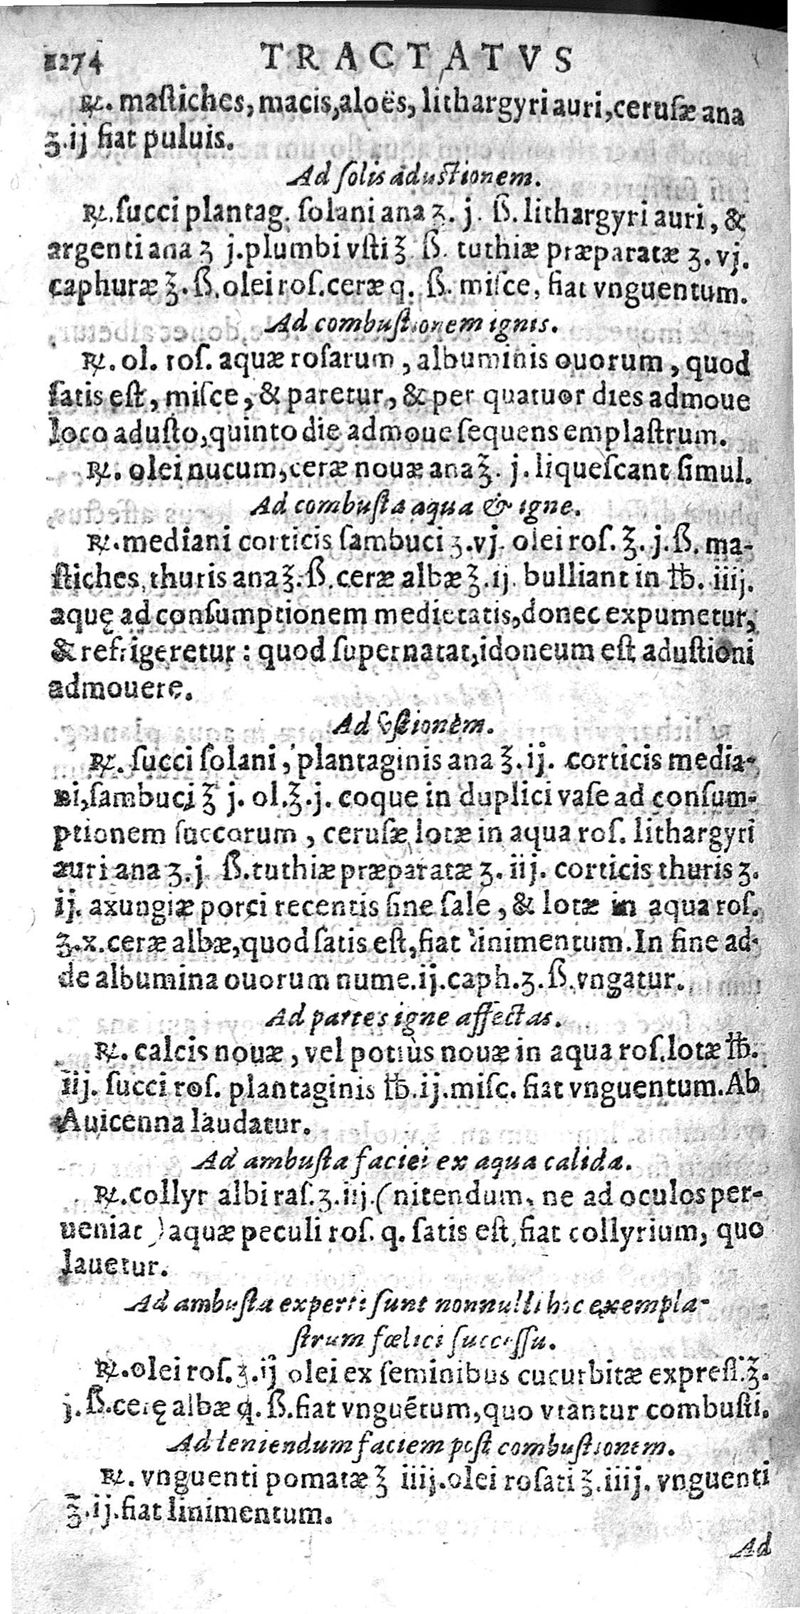 1274 TRACTATVS
℞. mastiches, macis, aloës, lithargyri auri, cerusæ ana
ʒ.ij fiat puluis.
Ad solis adustionem.
℞. succi plantag. solani ana ʒ. j. ß. lithargyri auri, &
argenti ana ʒ j. plumbi vsti ℥ ß. tuthiæ præparatæ ʒ. vj.
caphuræ ℥. ß. olei ros. ceræ q. ß. misce, fiat vnguentum.
Ad combustionem ignis.
℞. ol. ros. aquæ rosarum, albuminis ouorum, quod
satis est, misce, & paretur, & per quatuor dies admoue
loco adusto, quinto die admoue sequens emplastrum.
℞. olei nucum, ceræ nouæ ana ℥. j. liquescant simul.
Ad combusta aqua & igne.
℞. mediani corticis sambuci ʒ. vj. olei ros. ℥. j. ß. ma-
stiches, thuris ana ℥. ß. ceræ albæ ℥. ij. bulliant in ℔. iiij.
aquę ad consumptionem medietatis, donec expumetur,
& refrigeretur: quod supernatat, idoneum est adustioni
admouere.
Ad vstionem.
℞. succi solani, plantaginis ana ℥. ij. corticis media-
ni, sambuci ℥ j. ol. ℥. j. coque in duplici vase ad consum-
ptionem succorum, cerusæ lotæ in aqua ros. lithargyri
auri ana ʒ. j. ß. tuthiæ præparatæ ʒ. iij. corticis thuris ʒ.
ij. axungiæ porci recentis sine sale, & lotæ in aqua ros.
ʒ. x. ceræ albæ, quod satis est, fiat linimentum. In fine ad-
de albumina ouorum nume. ij. caph. ʒ. ß. vngatur.
Ad partes igne affectas.
℞. calcis nouæ, vel potiùs nouæ in aqua ros. lotæ ℔.
iij. succi ros. plantaginis ℔. ij. misc. fiat vnguentum. Ab
Auicenna laudatur.
Ad ambusta faciei ex aqua calida.
℞. collyr albi ras. ʒ. iij. (nitendum, ne ad oculos per-
ueniat) aquæ peculi ros. q. satis est, fiat collyrium, quo
lauetur.
Ad ambusta experti sunt nonnulli hoc exempla-
strum fœlici successu.
℞. olei ros. ʒ. ij olei ex seminibus cucurbitæ expressi. ℥.
j. ß. cerę albæ q. ß. fiat vnguētum, quo vtantur combusti.
Ad leniendum faciem post combustionem.
℞. vnguenti pomatæ ℥ iiij. olei rosati ℥. iiij. vnguenti
℥. ij. fiat linimentum.
Ad